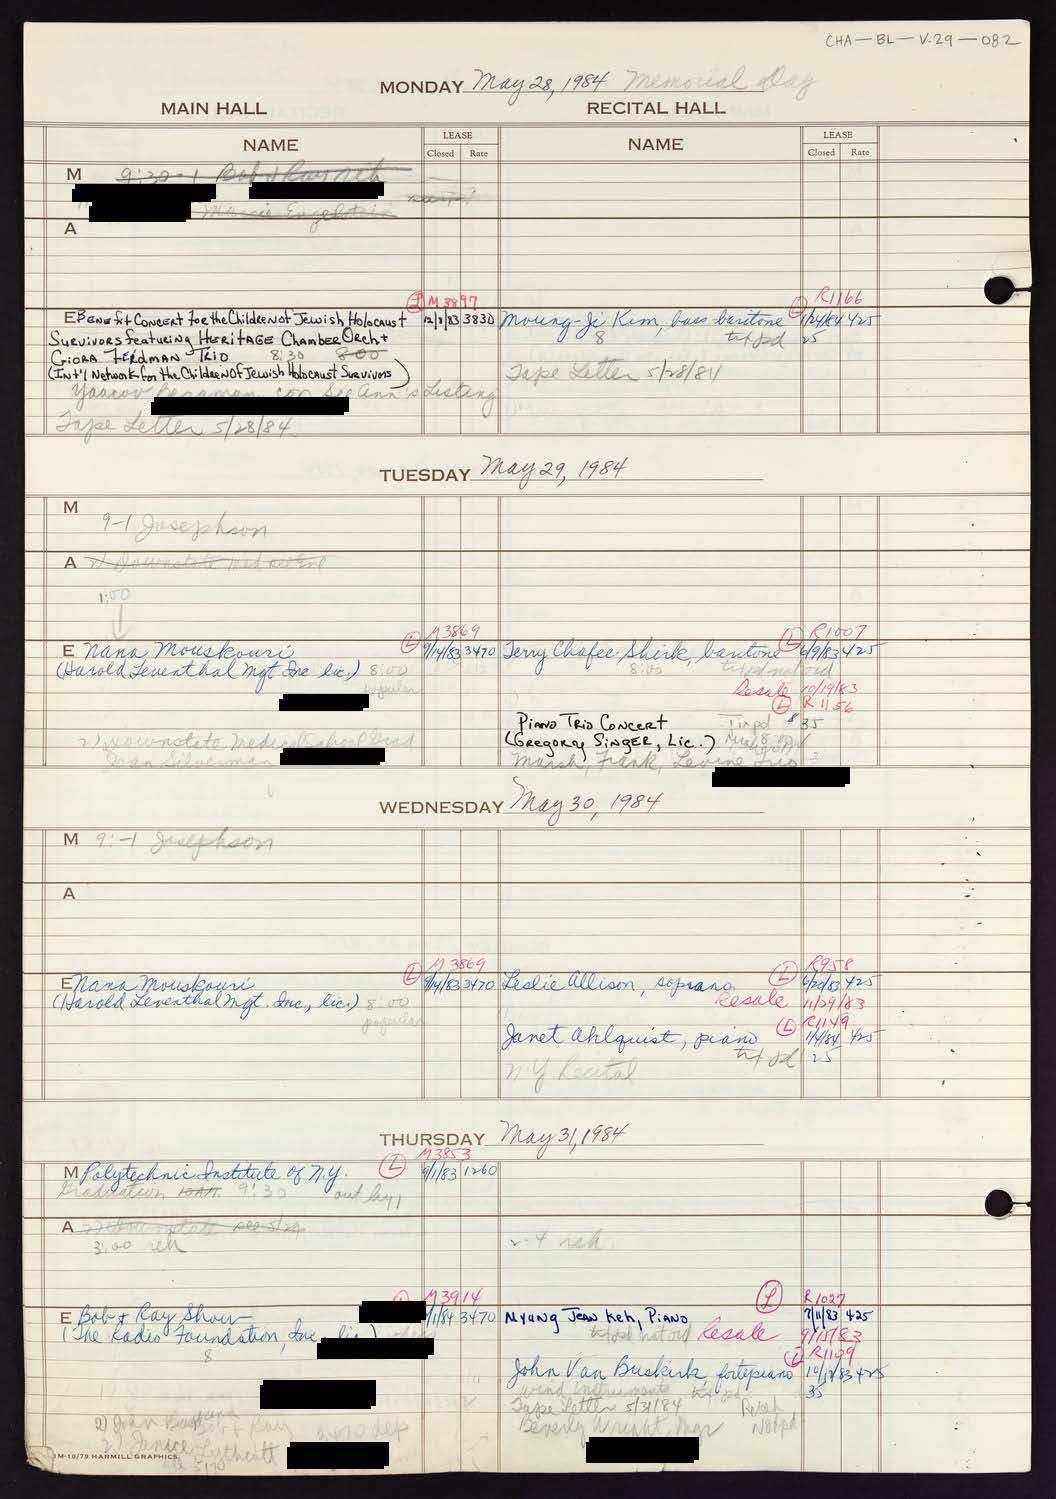 CHA-BL-V.29-082
MONDAY May 28, 1984 Memorial Day
MAIN HALL RECITAL HALL
NAME LEASE NAME LEASE
Closed Rate Closed Rate
M 9:30-1 Bob & Ray
A
L M3897 L R1166
E BENEFIT CONCERT for the Children of Jewish Holocaust 12/8/83 3830 Moung-Ji Kim, bass baritone 1/24/84 425
SURVIVORS featuring HERITAGE CHAMBER Orch + 8 txt pd 25
GIORA FEIDMAN TRIO 8:30 8:00
(Int'l Network for the Children Of Jewish Holocaust Survivors) Tape Letter 5/28/84
Yaacov Bergman, con See Ann's Listing
Tape Letter 5/28/84
TUESDAY May 29, 1984
M
9-1 Josephson
A 2) Downstate Med
1:00
L M3869 L R1007
E Nana Mouskouri 9/14/83 3470 Terry Chafee Shirk, baritone 6/9/83 425
(Harold Leventhal Mgt Inc lic.) 8:00 8:00 txt pd not ord
popular Resale 10/19/83
L R1156
PIANO TRIO CONCERT Tix pd $35
2) Downstate Medical School Grad (GREGORY SINGER, LIC.)
Joan Silverman Marsh, Frank, Levine Trio
WEDNESDAY May 30, 1984
M 9:-1 Josephson
A
L M3869 L R958
E Nana Mouskouri 9/14/83 3470 Leslie Allison, soprano 6/20/83 425
(Harold Leventhal Mgt. Inc., lic.) 8:00 Resale 11/29/83
popular L R1149
Janet Ahlquist, piano 1/4/84 425
txt pd 25
N.Y. Recital
THURSDAY May 31, 1984
L M3853
M Polytechnic Institute of N.Y. 9/1/83 1260
Graduation 10AM 9:30 out by 1
A 2) Downstate see 5/29
3:00 reh 2-4 reh.
L M3914 L R1027
E Bob & Ray Show 3470 Myung Jean Keh, PIANO 7/11/83 425
(The Radio Foundation, Inc. lic.) txt pd not ord Resale 9/15/83
8 L R1109
John Van Buskirk, fortepiano 10/12/83 425
wind instruments txt pd 35
Tape Letter 5/31/84
Bob & Ray 3470 dep Beverly Wright, Mgr
2) Janice Lythcott
1M-10/79 HARMILL GRAPHICS